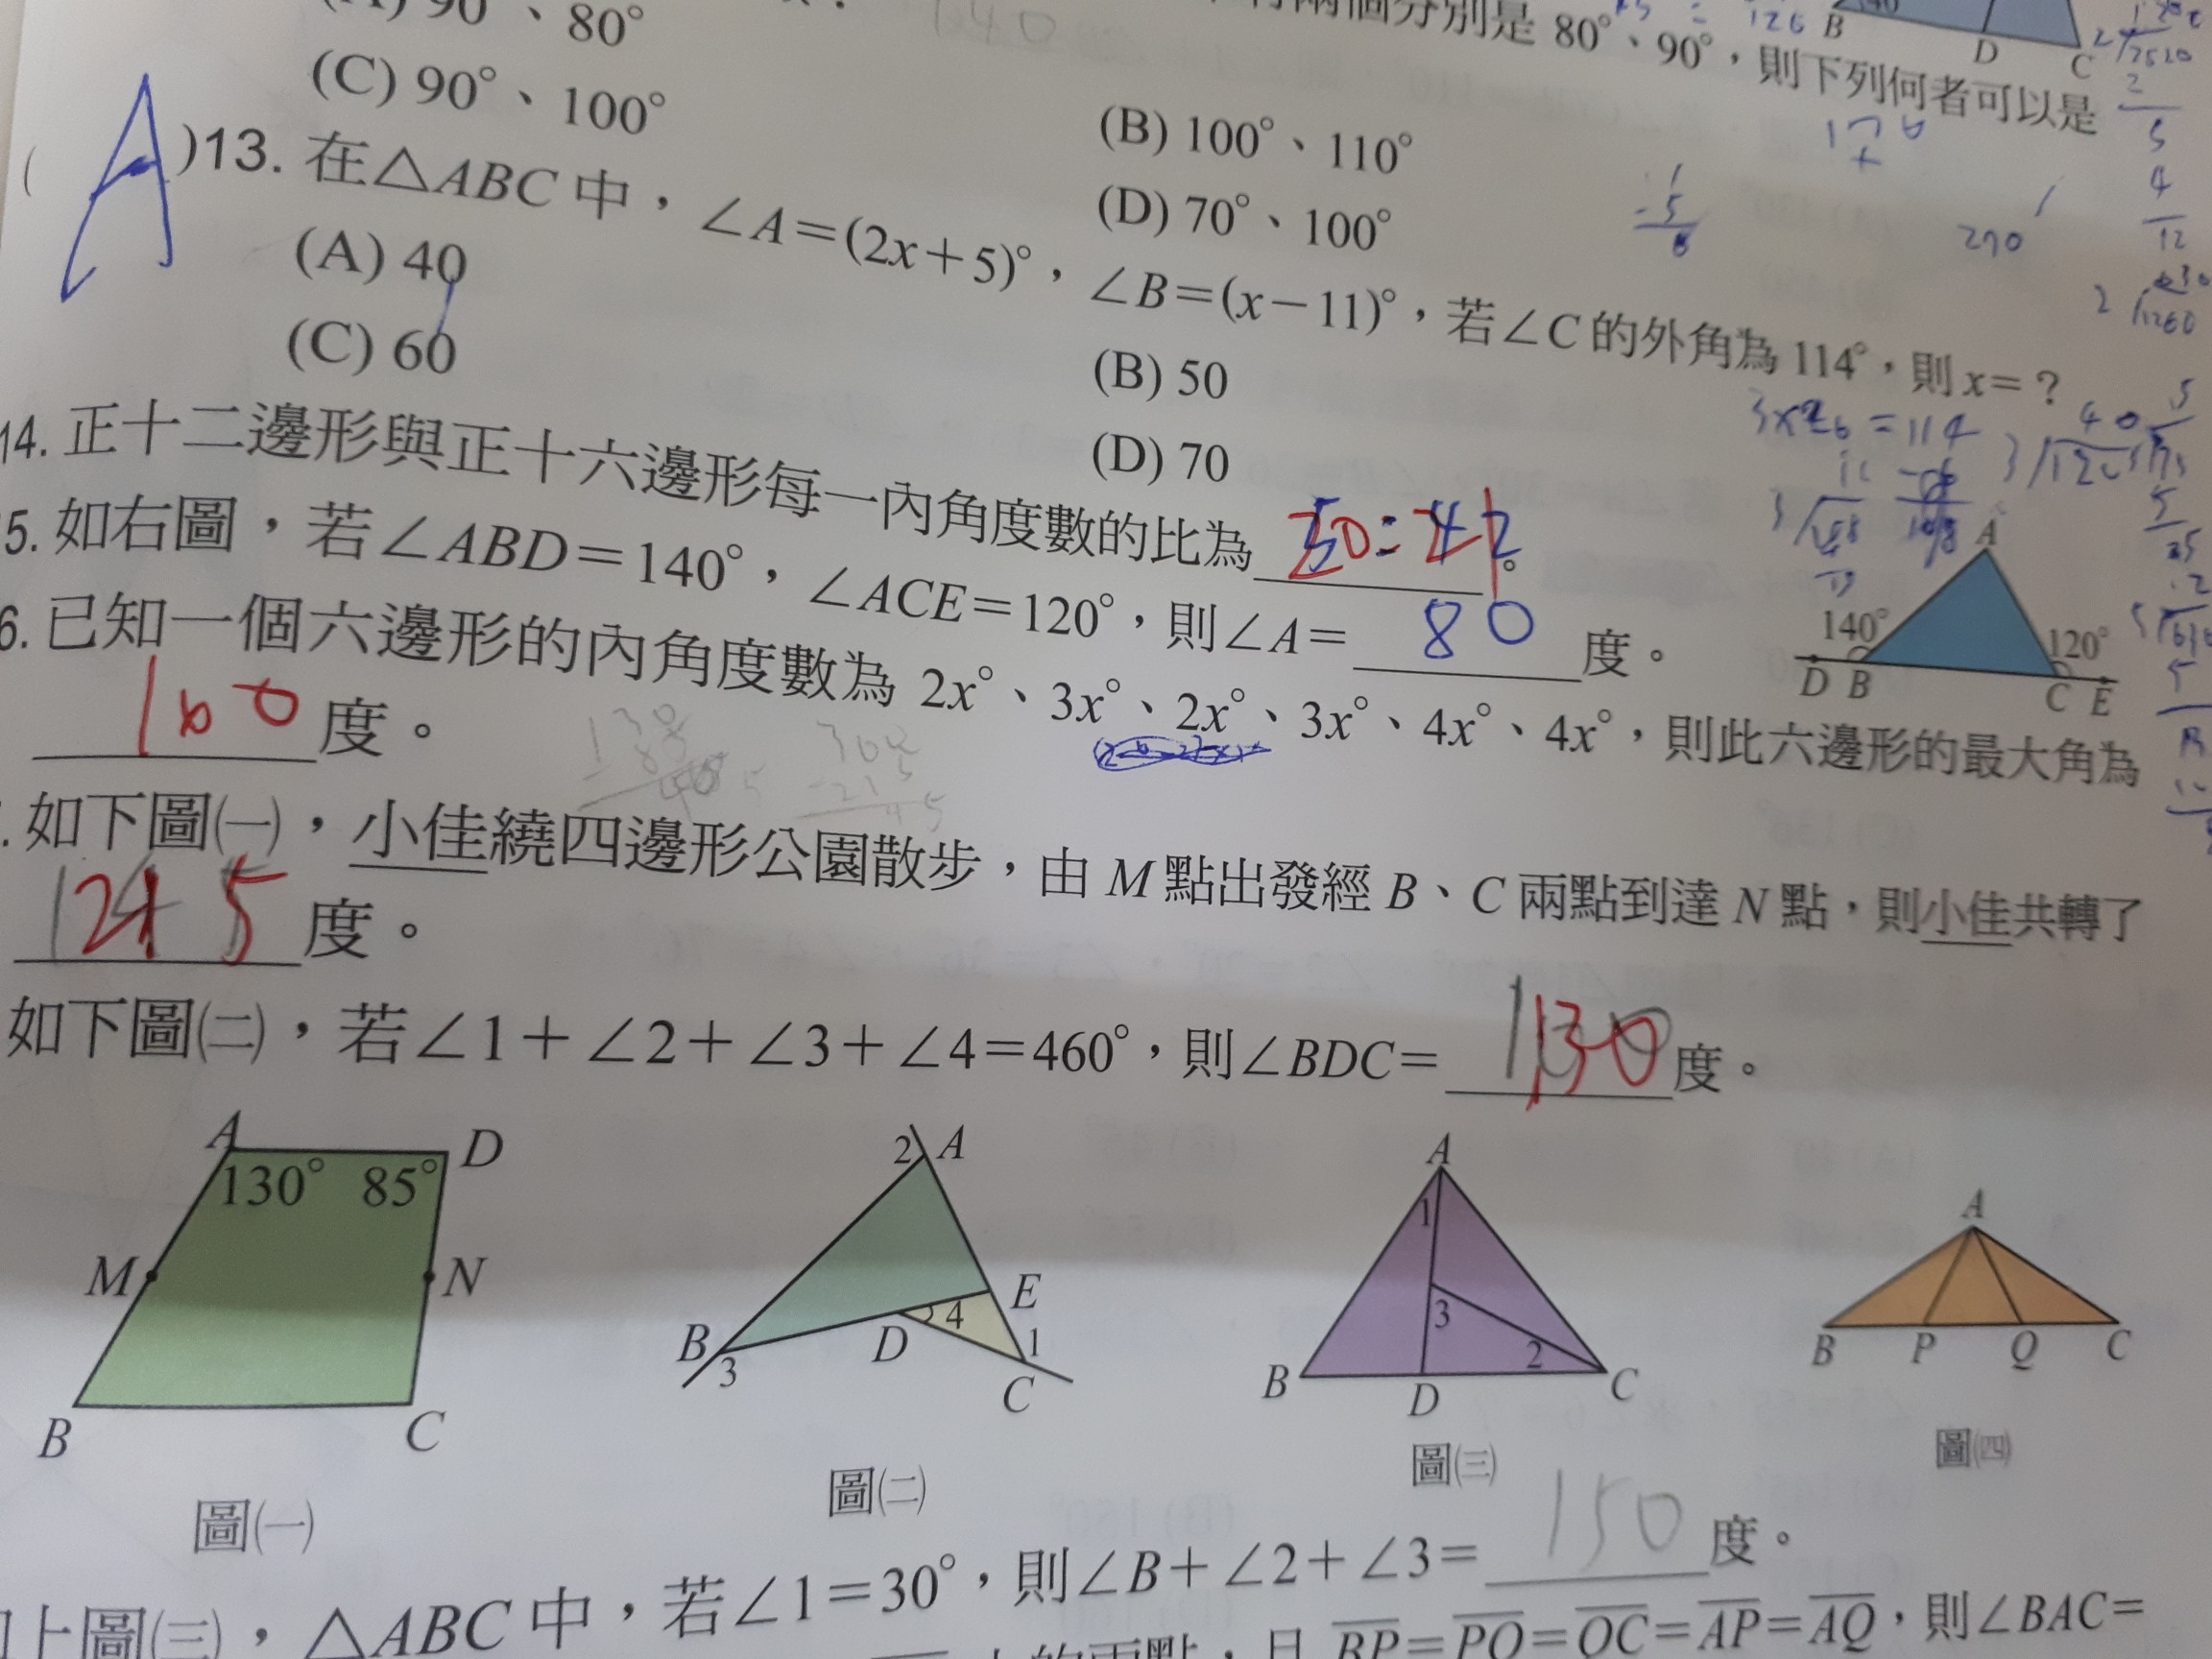 90°、80°
有兩個分別是 80°、90°，則下列何者可以是
(B) 100°、110°
(C) 90°、100°
(D) 70°、100°
( A )13. 在△ABC 中，∠A=(2x+5)°，∠B=(x−11)°，若∠C 的外角為 114°，則 x=？
(A) 40
(B) 50
(C) 60
(D) 70
14. 正十二邊形與正十六邊形每一內角度數的比為
5. 如右圖，若∠ABD=140°，∠ACE=120°，則∠A= 80 度。
6. 已知一個六邊形的內角度數為 2x°、3x°、2x°、3x°、4x°、4x°，則此六邊形的最大角為
160 度。
. 如下圖㈠，小佳繞四邊形公園散步，由 M 點出發經 B、C 兩點到達 N 點，則小佳共轉了
度。
如下圖㈡，若∠1+∠2+∠3+∠4=460°，則∠BDC= 130 度。
B D C
A
140° 120°
D B C E
A D
130° 85°
M N
B C
圖㈠
2 A
E
4
B D 1
3 C
圖㈡
A
1
3
2
B D C
圖㈢
A
B P Q C
圖㈣
上圖㈢，△ABC 中，若∠1=30°，則∠B+∠2+∠3= 150 度。
的兩點，且 BP=PQ=QC=AP=AQ，則∠BAC=